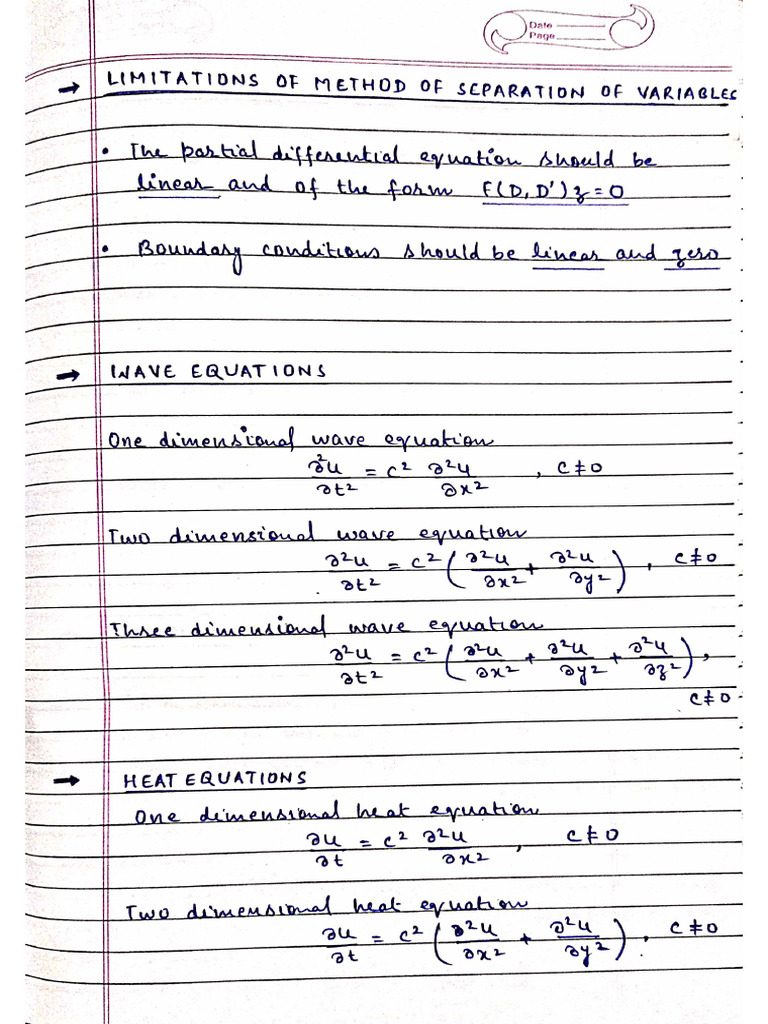 Date
Page
→ LIMITATIONS OF METHOD OF SEPARATION OF VARIABLES
• The partial differential equation should be
linear and of the form F(D, D')z = 0
• Boundary conditions should be linear and zero
→ WAVE EQUATIONS
One dimensional wave equation
∂²u/∂t² = c² ∂²u/∂x² , c ≠ 0
Two dimensional wave equation
∂²u/∂t² = c² (∂²u/∂x² + ∂²u/∂y²) , c ≠ 0
Three dimensional wave equation
∂²u/∂t² = c² (∂²u/∂x² + ∂²u/∂y² + ∂²u/∂z²) ,
c ≠ 0
→ HEAT EQUATIONS
One dimensional heat equation
∂u/∂t = c² ∂²u/∂x² , c ≠ 0
Two dimensional heat equation
∂u/∂t = c² (∂²u/∂x² + ∂²u/∂y²) , c ≠ 0